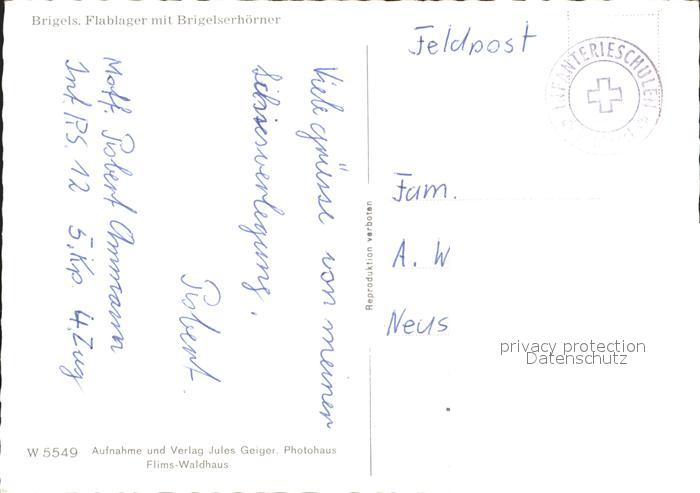 Brigels. Flablager mit Brigelserhörner
Feldpost
INFANTERIESCHULEN
Viele grüsse von meiner
Schiessverlegung.
Robert.
Robert Ammann
Inf. RS. 12 5. Kp. 4. Zug
Fam.
A. W
Neus
Reproduktion verboten
privacy protection
Datenschutz
W 5549 Aufnahme und Verlag Jules Geiger. Photohaus
Flims-Waldhaus